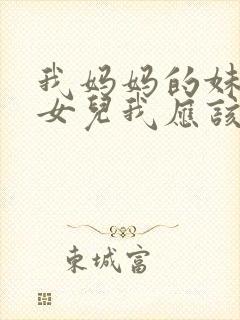 我妈妈的妹
女兒我應該
東城富